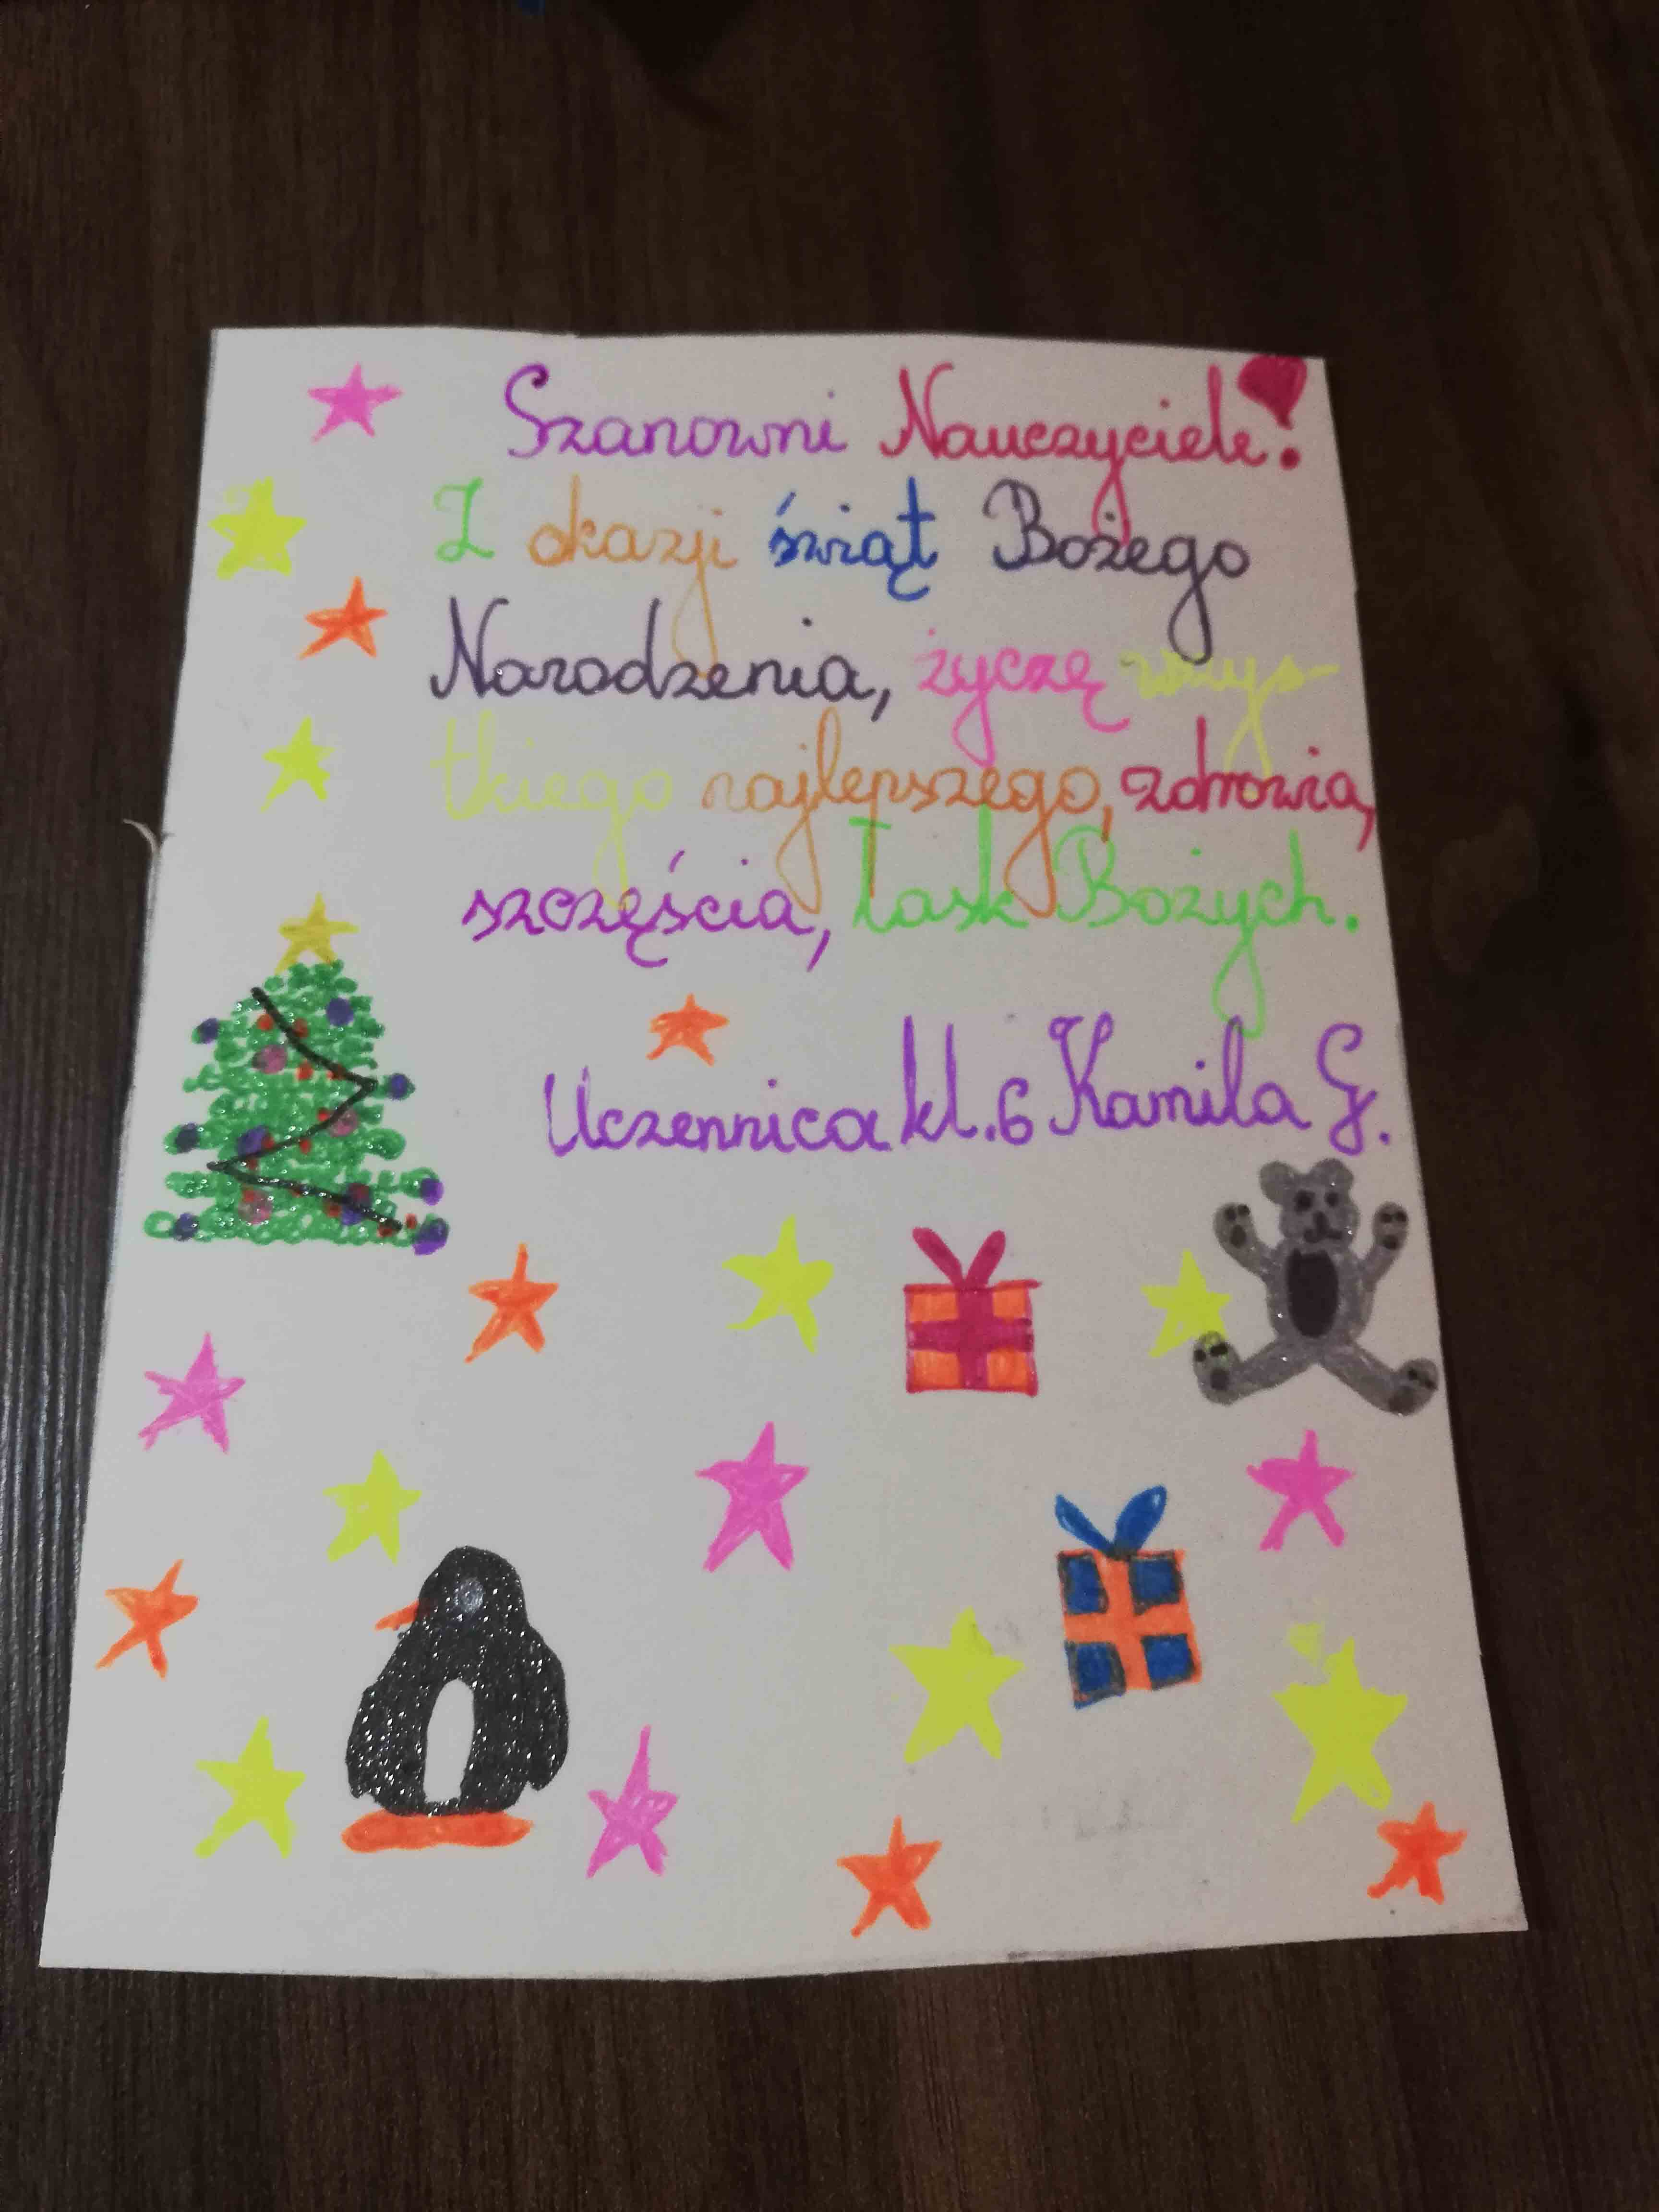 Szanowni Nauczyciele!
Z okazji świąt Bożego
Narodzenia, życzę wszys-
tkiego najlepszego, zdrowia,
szczęścia, łask Bożych.
Uczennica kl. 6 Kamila G.